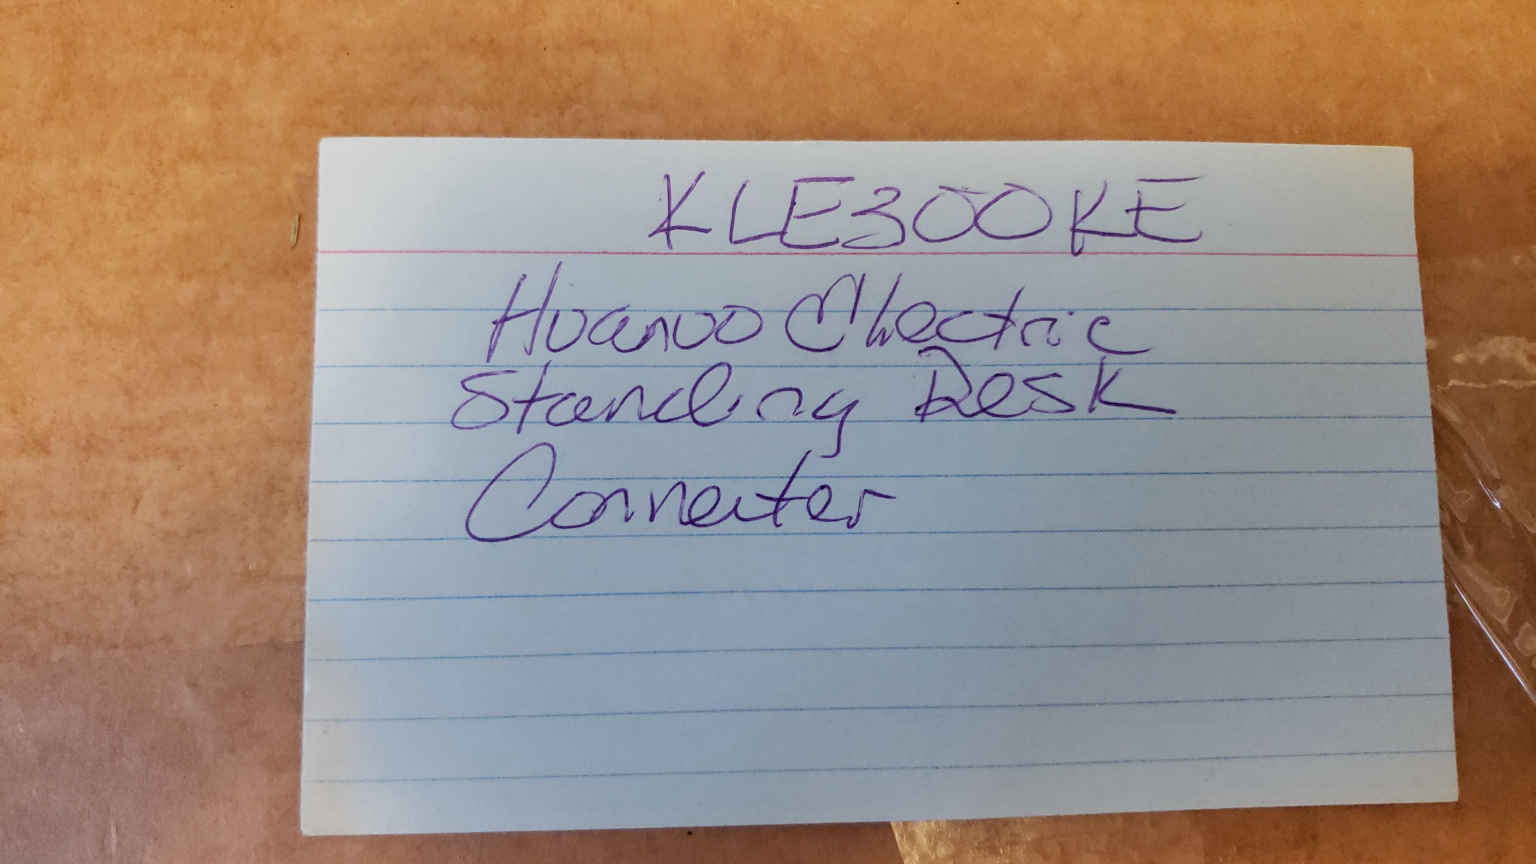 KLE300KE
Huanuo Electric
Standing Desk
Connecter